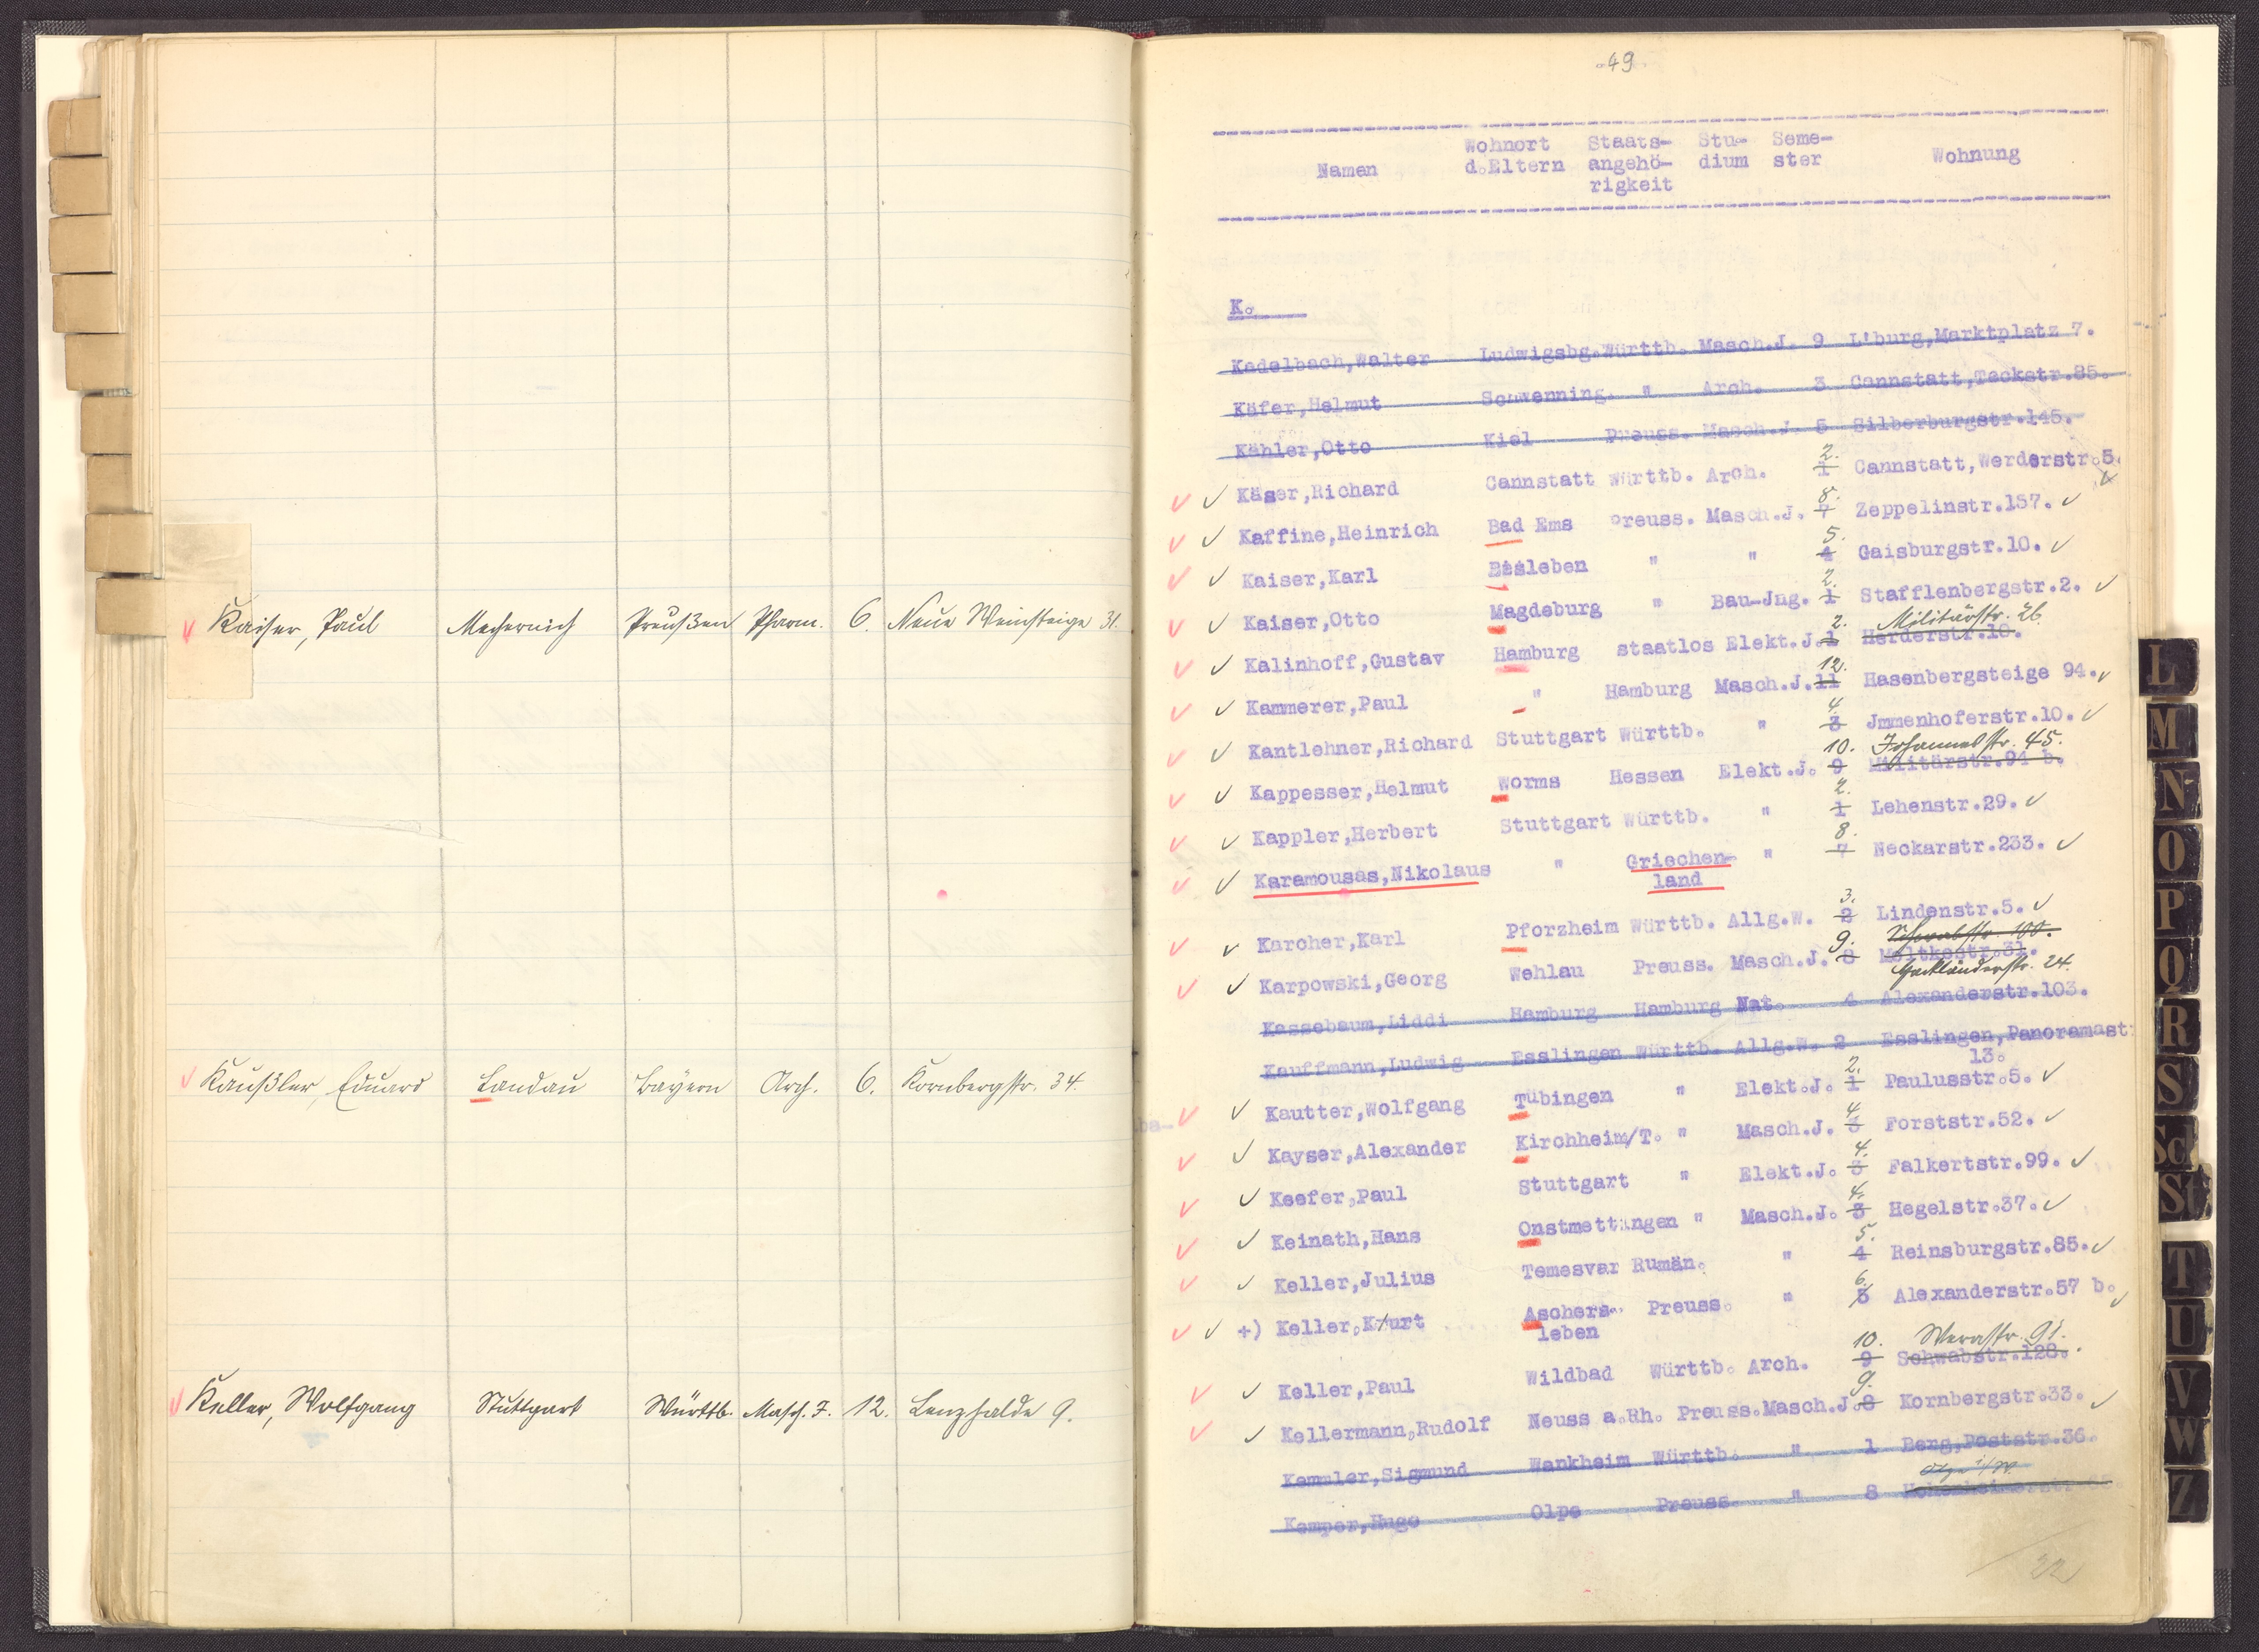 Kaiser, Paul Mechernich Preußen Pharm. 6. Neue Weinsteige 31.
Kaußler, Eduard Landau Bayern Arch. 6. Kornbergstr. 34.
Keller, Wolfgang Stuttgart Württb. Masch. J. 12. Lenzhalde 9.
49
Namen Wohnort d.Eltern Staats- angehö- rigkeit Stu- dium Seme- ster Wohnung
K.
Kadelbach,Walter Ludwigsbg.Württb. Masch.J. 9 L'burg,Marktplatz 7.
Käfer,Helmut Schwenning. " Arch. 3 Cannstatt,Teckstr.85.
Kähler,Otto Kiel Preuss. Masch.J. 5 Silberburgstr.145.
2.
Käser,Richard Cannstatt Württb. Arch. 1 Cannstatt,Werderstr.5.
8.
Kaffine,Heinrich Bad Ems Preuss. Masch.J. 7 Zeppelinstr.157.
5.
Kaiser,Karl Eisleben " " 4 Gaisburgstr.10.
2.
Kaiser,Otto Magdeburg " Bau-Jng. 1 Stafflenbergstr.2.
2. Militärstr. 26.
Kalinhoff,Gustav Hamburg staatlos Elekt.J. 1 Herderstr.10.
12.
Kammerer,Paul " Hamburg Masch.J. 11 Hasenbergsteige 94.
4.
Kantlehner,Richard Stuttgart Württb. " 3 Jmmenhoferstr.10.
10. Johannesstr. 45.
Kappesser,Helmut Worms Hessen Elekt.J. 9 Militärstr.94 b.
2.
Kappler,Herbert Stuttgart Württb. " 1 Lehenstr.29.
8.
Karamousas,Nikolaus " Griechen- " 7 Neckarstr.233.
land
3.
Karcher,Karl Pforzheim Württb. Allg.W. 2 Lindenstr.5.
9. Schwabstr. 100.
Karpowski,Georg Wehlau Preuss. Masch.J. 8 Moltkestr.31.
Hackländerstr. 24.
Kassebaum,Liddi Hamburg Hamburg Nat. 4 Alexanderstr.103.
Kauffmann,Ludwig Esslingen Württb. Allg.W. 2 Esslingen,Panoramastr
13.
2.
Kautter,Wolfgang Tübingen " Elekt.J. 1 Paulusstr.5.
4.
Kayser,Alexander Kirchheim/T. " Masch.J. 3 Forststr.52.
4.
Keefer,Paul Stuttgart " Elekt.J. 3 Falkertstr.99.
4.
Keinath,Hans Onstmettingen " Masch.J. 3 Hegelstr.37.
5.
Keller,Julius Temesvar Rumän. " 4 Reinsburgstr.85.
6.
+) Keller,Kurt Aschers- Preuss. " 5 Alexanderstr.57 b.
leben
10. Werastr. 91.
Keller,Paul Wildbad Württb. Arch. 9 Schwabstr.128.
9.
Kellermann,Rudolf Neuss a.Rh. Preuss.Masch.J. 8 Kornbergstr.33.
Kemmler,Sigmund Wankheim Württb. " 1 Berg,Poststr.36.
Kemper,Hugo Olpe Preuss. " 8
22
L
M
N
O
P
Q
R
S
Sch
St
T
U
V
W
Z